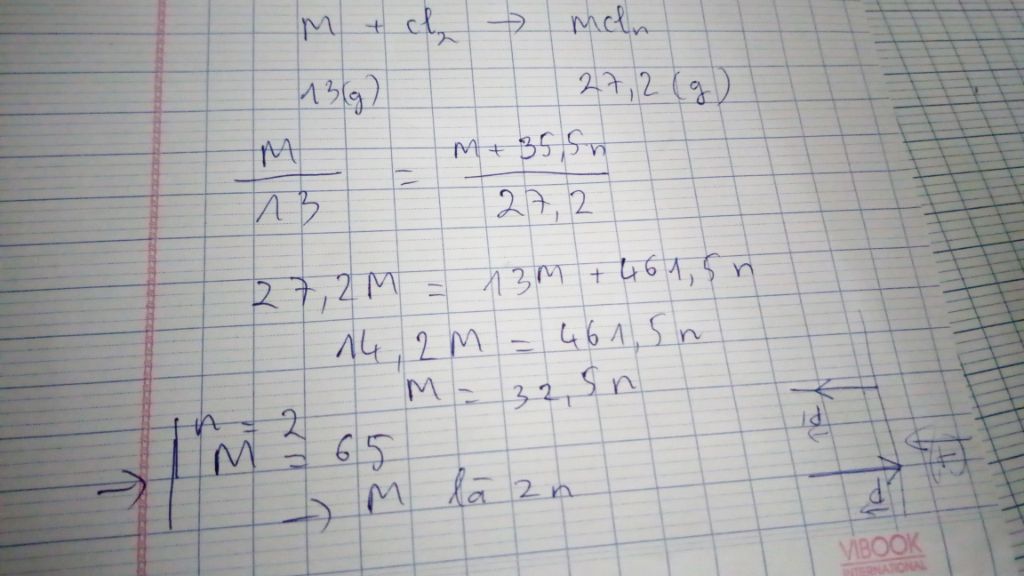 M + Cl₂ → MCln
13(g) 27,2 (g)
M/13 = M + 35,5n/27,2
27,2M = 13M + 461,5n
14,2M = 461,5n
M = 32,5n
n = 2
M = 65
→ M là Zn
VIBOOK
INTERNATIONAL